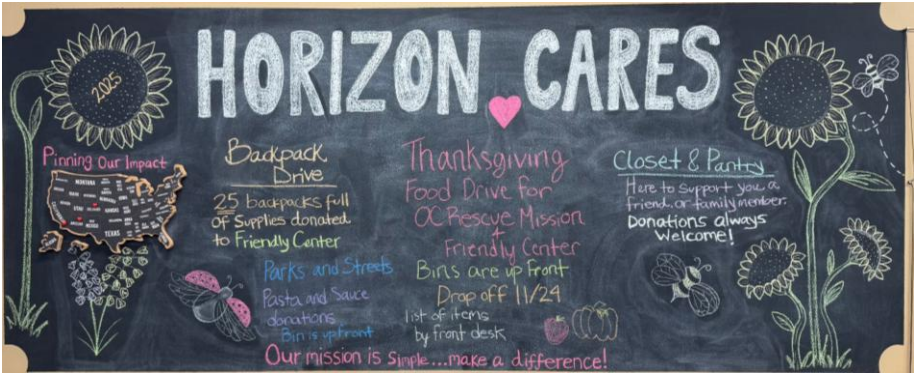 HORIZON CARES
2025
Pinning Our Impact
MONTANA
TEXAS
Backpack
Drive
25 backpacks full
of Supplies donated
to Friendly Center
Parks and Streets
Pasta and Sauce
donations
Bin is upfront
Thanksgiving
Food Drive for
OC Rescue Mission
+
Friendly Center
Bins are up front
Drop off 11/24
list of items
by front desk
Closet & Pantry
Here to support you a
friend, or family member.
Donations always
Welcome!
Our mission is simple...make a difference!